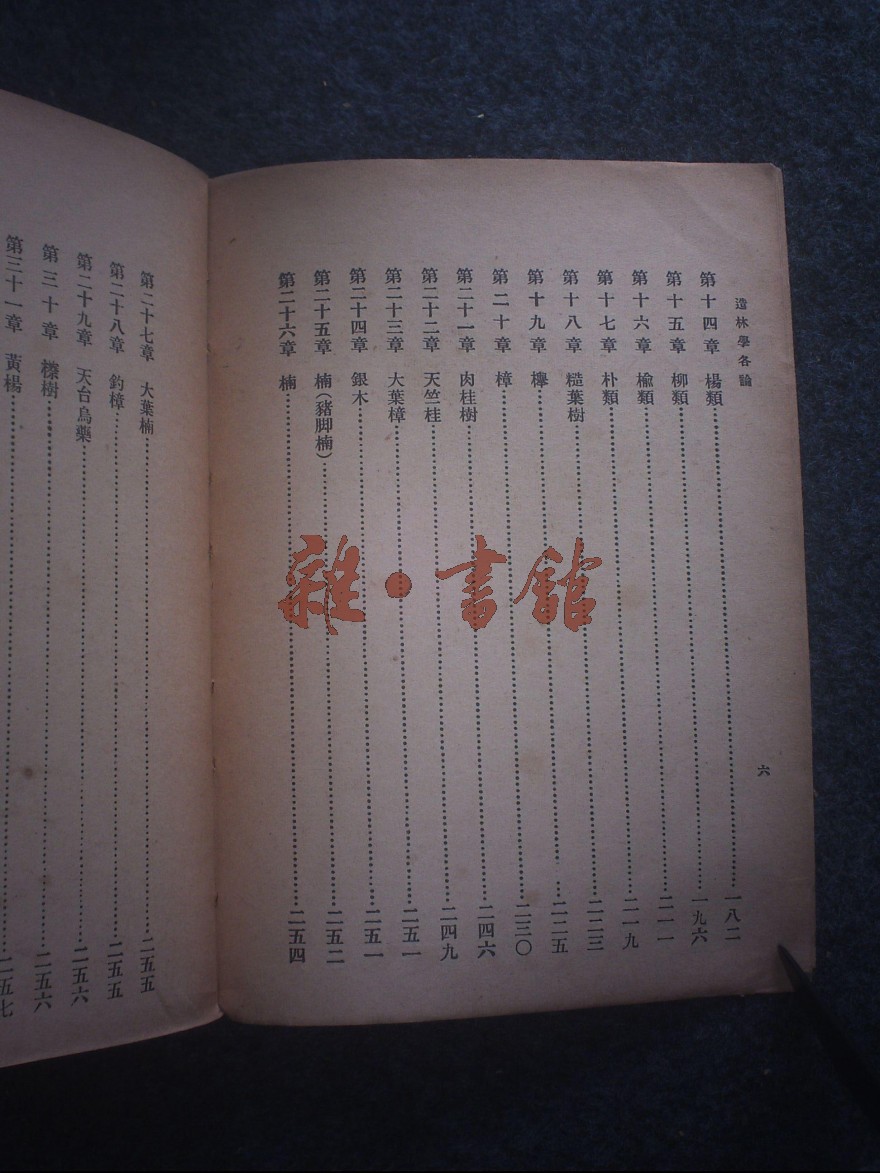 造林學各論
六
第十四章 楊類……一八二
第十五章 柳類……一九六
第十六章 楡類……二一一
第十七章 朴類……二一九
第十八章 糙葉樹……二二三
第十九章 櫸……二二五
第二十章 樟……二三〇
第二十一章 肉桂樹……二四六
第二十二章 天竺桂……二四九
第二十三章 大葉樟……二五一
第二十四章 銀木……二五一
第二十五章 楠(豬脚楠)……二五二
第二十六章 楠……二五四
第二十七章 大葉楠……二五五
第二十八章 釣樟……二五五
第二十九章 天台烏藥……二五六
第三十章 檫樹……二五六
第三十一章 黃楊……二五七
雜·書館